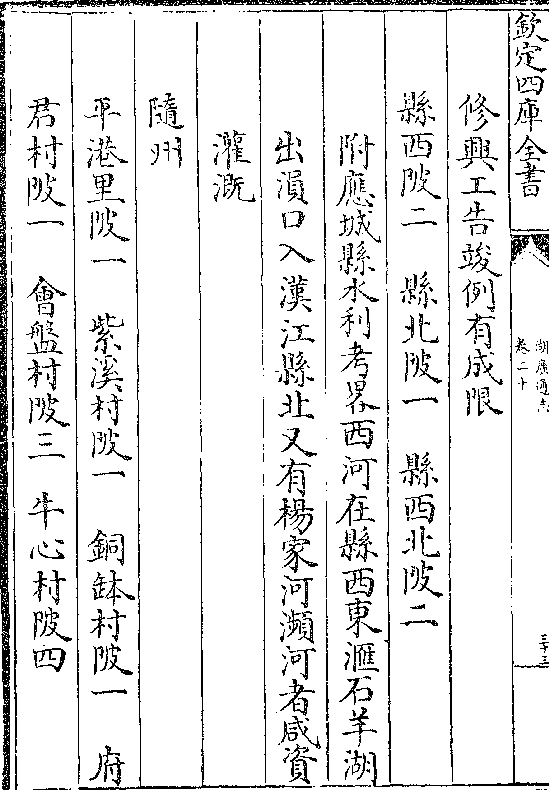 欽定四庫全書
湖廣通志
卷二十
三十三
修興工告竣例有成限
縣西陂二　縣北陂一　縣西北陂二
附應城縣水利考畧西河在縣西東滙石羊湖
出溳口入漢江縣北又有楊家河瀕河者咸資
灌溉
隨州
平港里陂一　紫溪村陂一　銅缽村陂一　府
君村陂一　會盤村陂三　牛心村陂四